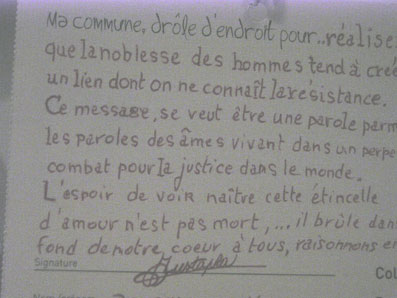 Ma commune, drôle d'endroit pour..réalise
que la noblesse des hommes tend à cré
un lien dont on ne connaît la résistance.
Ce message, se veut être une parole parm
les paroles des âmes vivant dans un perpe
combat pour la justice dans le monde.
L'espoir de voir naître cette étincelle
d'amour n'est pas mort, ... il brûle dan
fond de notre coeur à tous, raisonnons en
Signature
Col